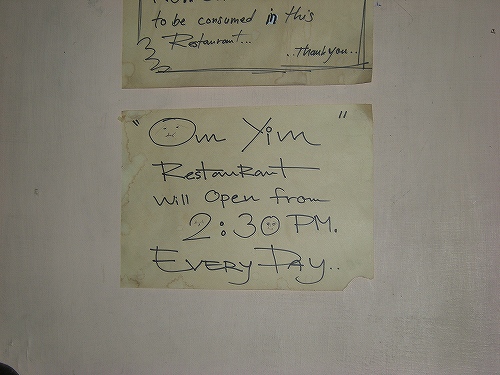 to be consumed in this
Restaurant...
..Thank you..
"Om Yim"
Restaurant
will Open from
2:30 PM.
EVERY DAY..